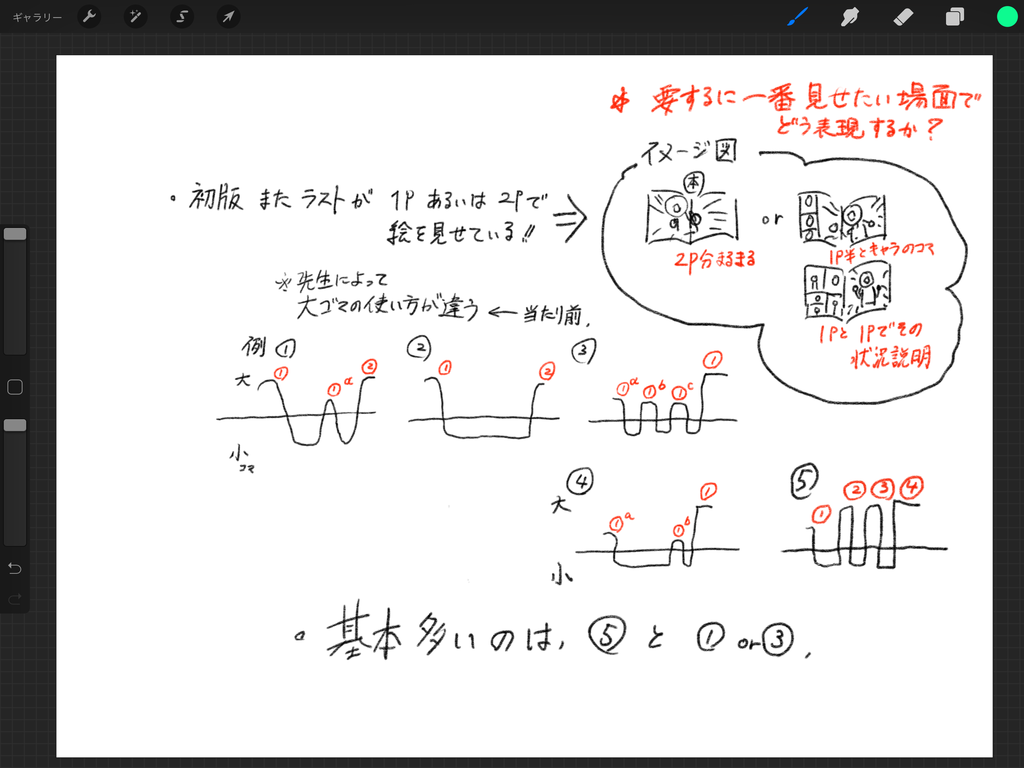 ギャラリー
* 要するに一番見せたい場面で
どう表現するか?
イメージ図
・初版 また ラストが 1P あるいは 2Pで
絵を見せている!!
⇒
本
or
2P分まるまる
1P半とキャラのコマ
1Pと1Pでその
状況説明
※先生によって
大ゴマの使い方が違う ← 当たり前.
例 ① ② ③
大
① ①a ②
① ②
①a ①b ①c ①
小
コマ
④ ⑤
大
①a ①b ①
① ② ③ ④
小
・基本多いのは, ⑤ と ① or ③.